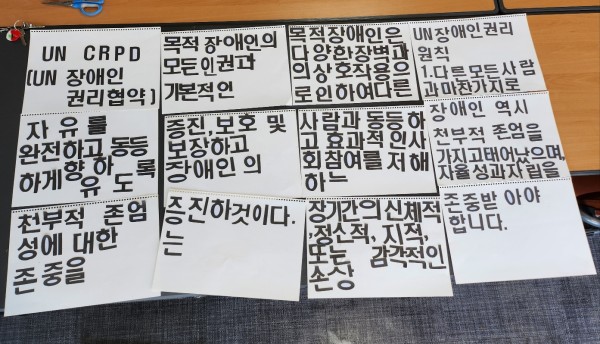 UN CRPD
(UN 장애인
권리협약)
목적 장애인의
모든인권과
기본적언
목적장애인은
다양한장벽과
의상호작용으
로인하여다른
UN장애인권리
원칙
1.다른모든사람
과마찬가지로
자유를
완전하고,동등
하게향하 록
유 도
증진,보호 및
보장하고
장애인의
사람과동등하
고효과적인사
회참여를저해
하느
장애인 역시
천부적존엄을
가지고태어났으며,
자율성과자립을
천부적 존엄
성에대한
존중을
증진하것이다.
는
장기간의신체적
,정신적, 지적,
또는 감각적인
손상
존중받아야
합니다.